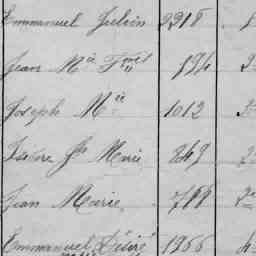 Emmanuel Julien 2218
Jean M.ie 894
Joseph M.ie 1012
Isidore Jh Marie 849
Jean Marie 788
Emmanuel Désiré 1966